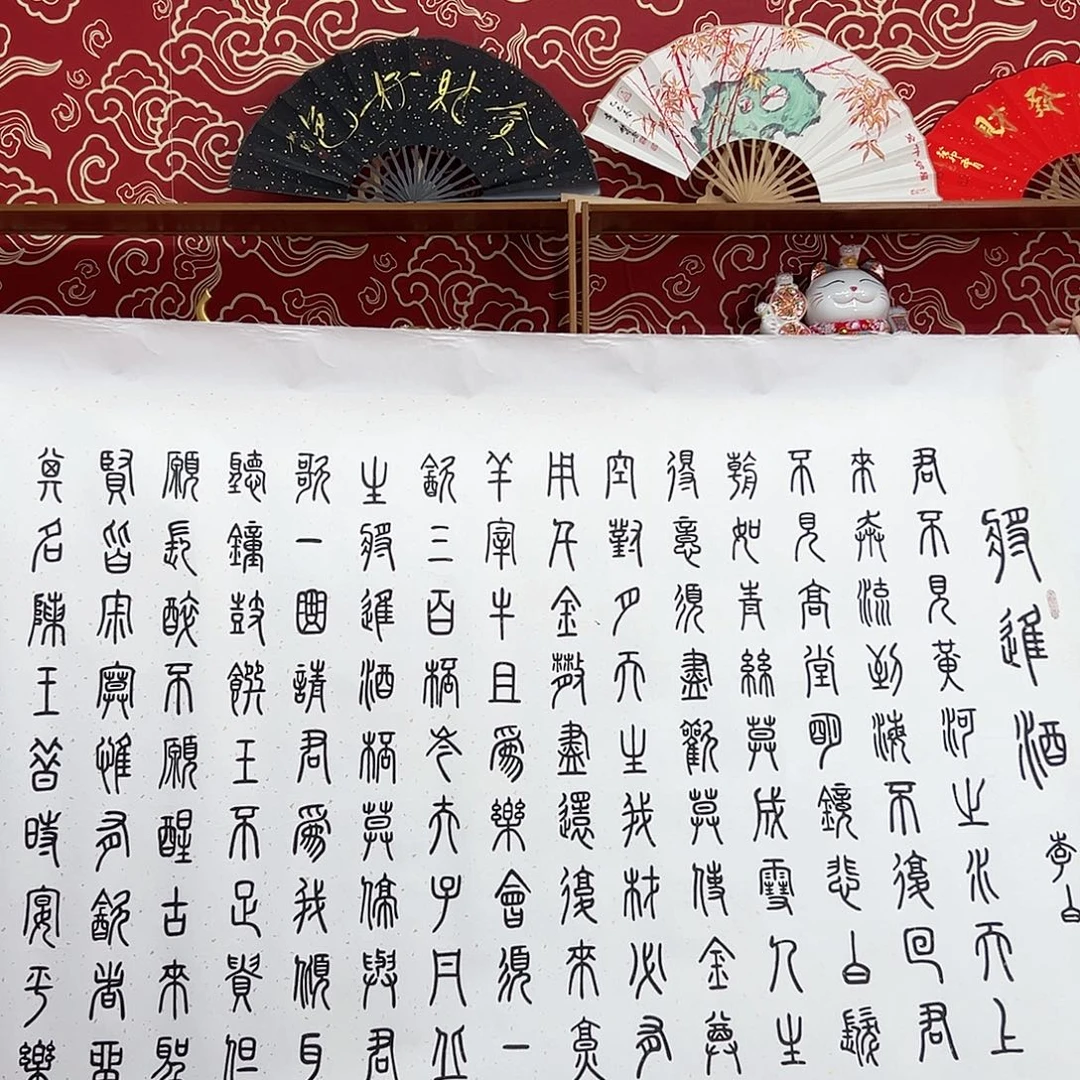 貪財好色
發財
將進酒
李白
君不見黃河之水天上
來奔流到海不復回君
不見高堂明鏡悲白髮
朝如青絲莫成雪人生
得意須盡歡莫使金尊
空對月天生我材必有
用千金散盡還復來烹
羊宰牛且為樂會須一
飲三百杯岑夫子丹丘
生將進酒杯莫停與君
歌一曲請君為我傾耳
聽鐘鼓饌玉不足貴但
願長醉不願醒古來聖
賢皆寂寞惟有飲者留
其名陳王昔時宴平樂